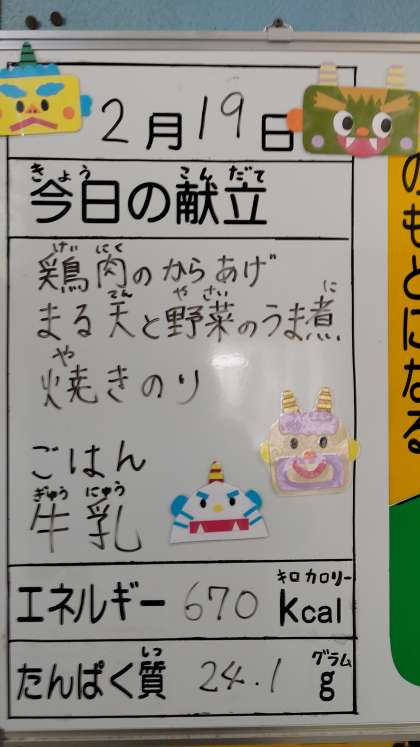 2月19日
きょう こん だて
今日の献立
げい にく
鶏肉のからあげ
てん や さい に
まる天と野菜のうま煮
や
焼きのり
ごはん
ぎゅう にゅう
牛乳
キロ カロリー
エネルギー 670 kcal
しつ グラム
たんぱく質 24.1 g
のもとになる